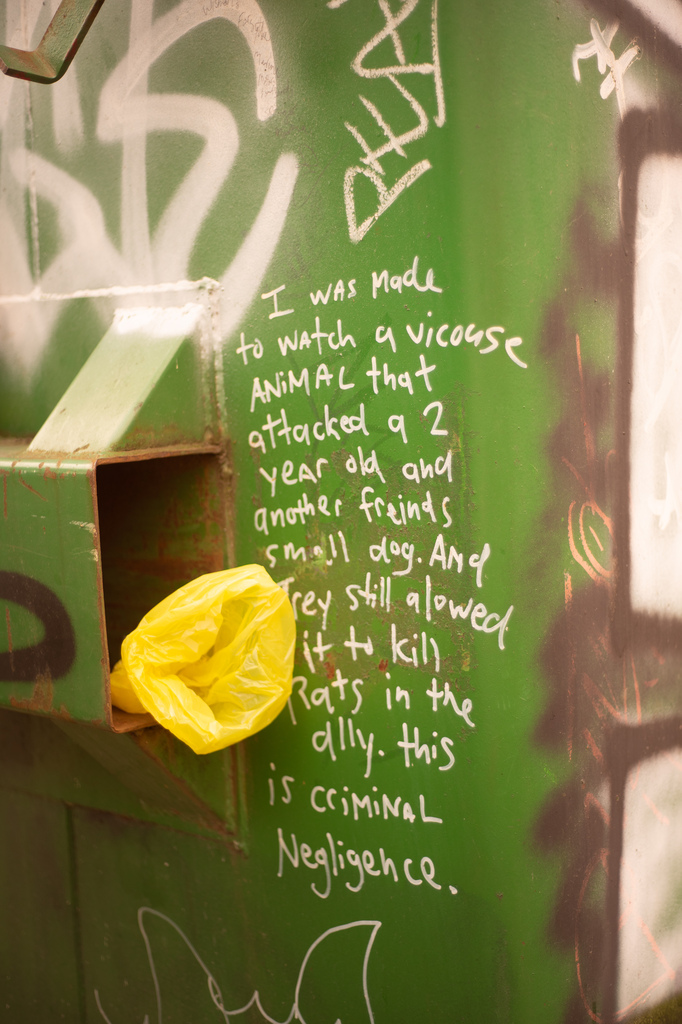 I was made
to watch a vicouse
ANiMAL that
attacked a 2
year old and
another freinds
small dog. And
They still alowed
it to kill
Rats in the
ally. this
is criMiNAL
Negligence.